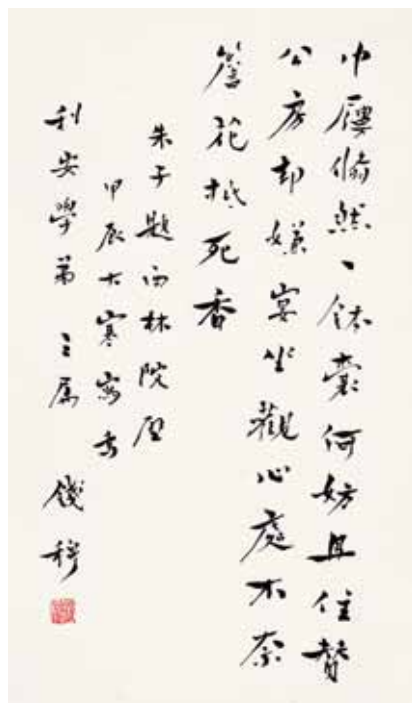 巾屨翛然一鉢囊何妨且住贊
公房却嫌宴坐觀心處不奈
簷花抵死香
朱子題西林院壁
甲辰大寒寫
利安學弟之屬 錢穆